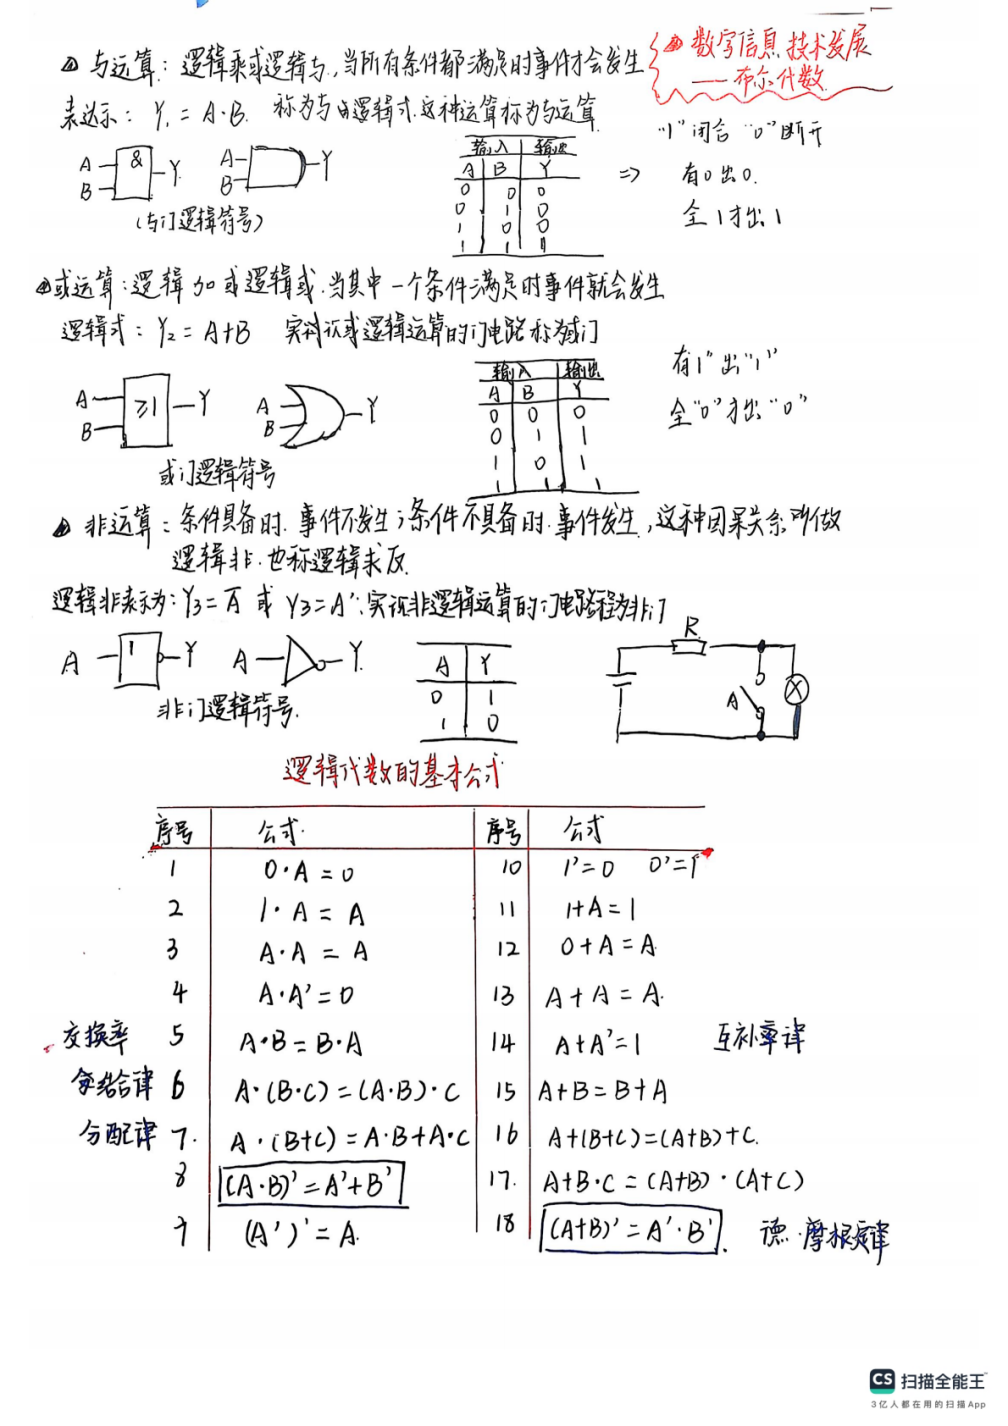 与运算：逻辑乘或逻辑与，当所有条件都满足时事件才会发生
数字信息技术发展
——布尔代数
表达示： Y₁ = A·B. 称为与逻辑式.这种运算称为与运算
"1"闭合 "0"断开
A B & Y
A B Y
(与门逻辑符号)
输入 输出
A B Y
0 0 0
0 1 0
1 0 0
1 1 1
⇒ 有0出0.
全1才出1
或运算:逻辑加或逻辑或.当其中一个条件满足时事件就会发生
逻辑式： Y₂ = A+B 实现或逻辑运算的门电路称为或门
A B ≥1 Y
A B Y
或门逻辑符号
输入 输出
A B Y
0 0 0
0 1 1
1 0 1
1 1 1
有"1"出"1"
全"0"才出"0"
非运算：条件具备时.事件不发生；条件不具备时.事件发生,这种因果关系叫做
逻辑非.也称逻辑求反.
逻辑非表示为:Y3=A̅ 或 Y3=A';实现非逻辑运算的门电路称为非门
A 1 Y
A Y
非门逻辑符号.
A Y
0 1
1 0
R
A
逻辑代数的基本公式
序号 公式. 序号 公式
1 0·A=0 10 1'=0 0'=1
2 1·A=A 11 1+A=1
3 A·A=A 12 0+A=A
4 A·A'=0 13 A+A=A.
交换率 5 A·B=B·A 14 A+A'=1 互补率律
结合律 6 A·(B·C)=(A·B)·C 15 A+B=B+A
分配律 7. A·(B+C)=A·B+A·C 16 A+(B+C)=(A+B)+C.
8 (A·B)'=A'+B' 17. A+B·C=(A+B)·(A+C)
9 (A')'=A. 18 (A+B)'=A'·B'. 德·摩根定律
CS 扫描全能王
3亿人都在用的扫描App